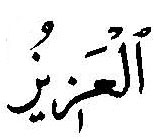 ٱلْعَزِيزُ